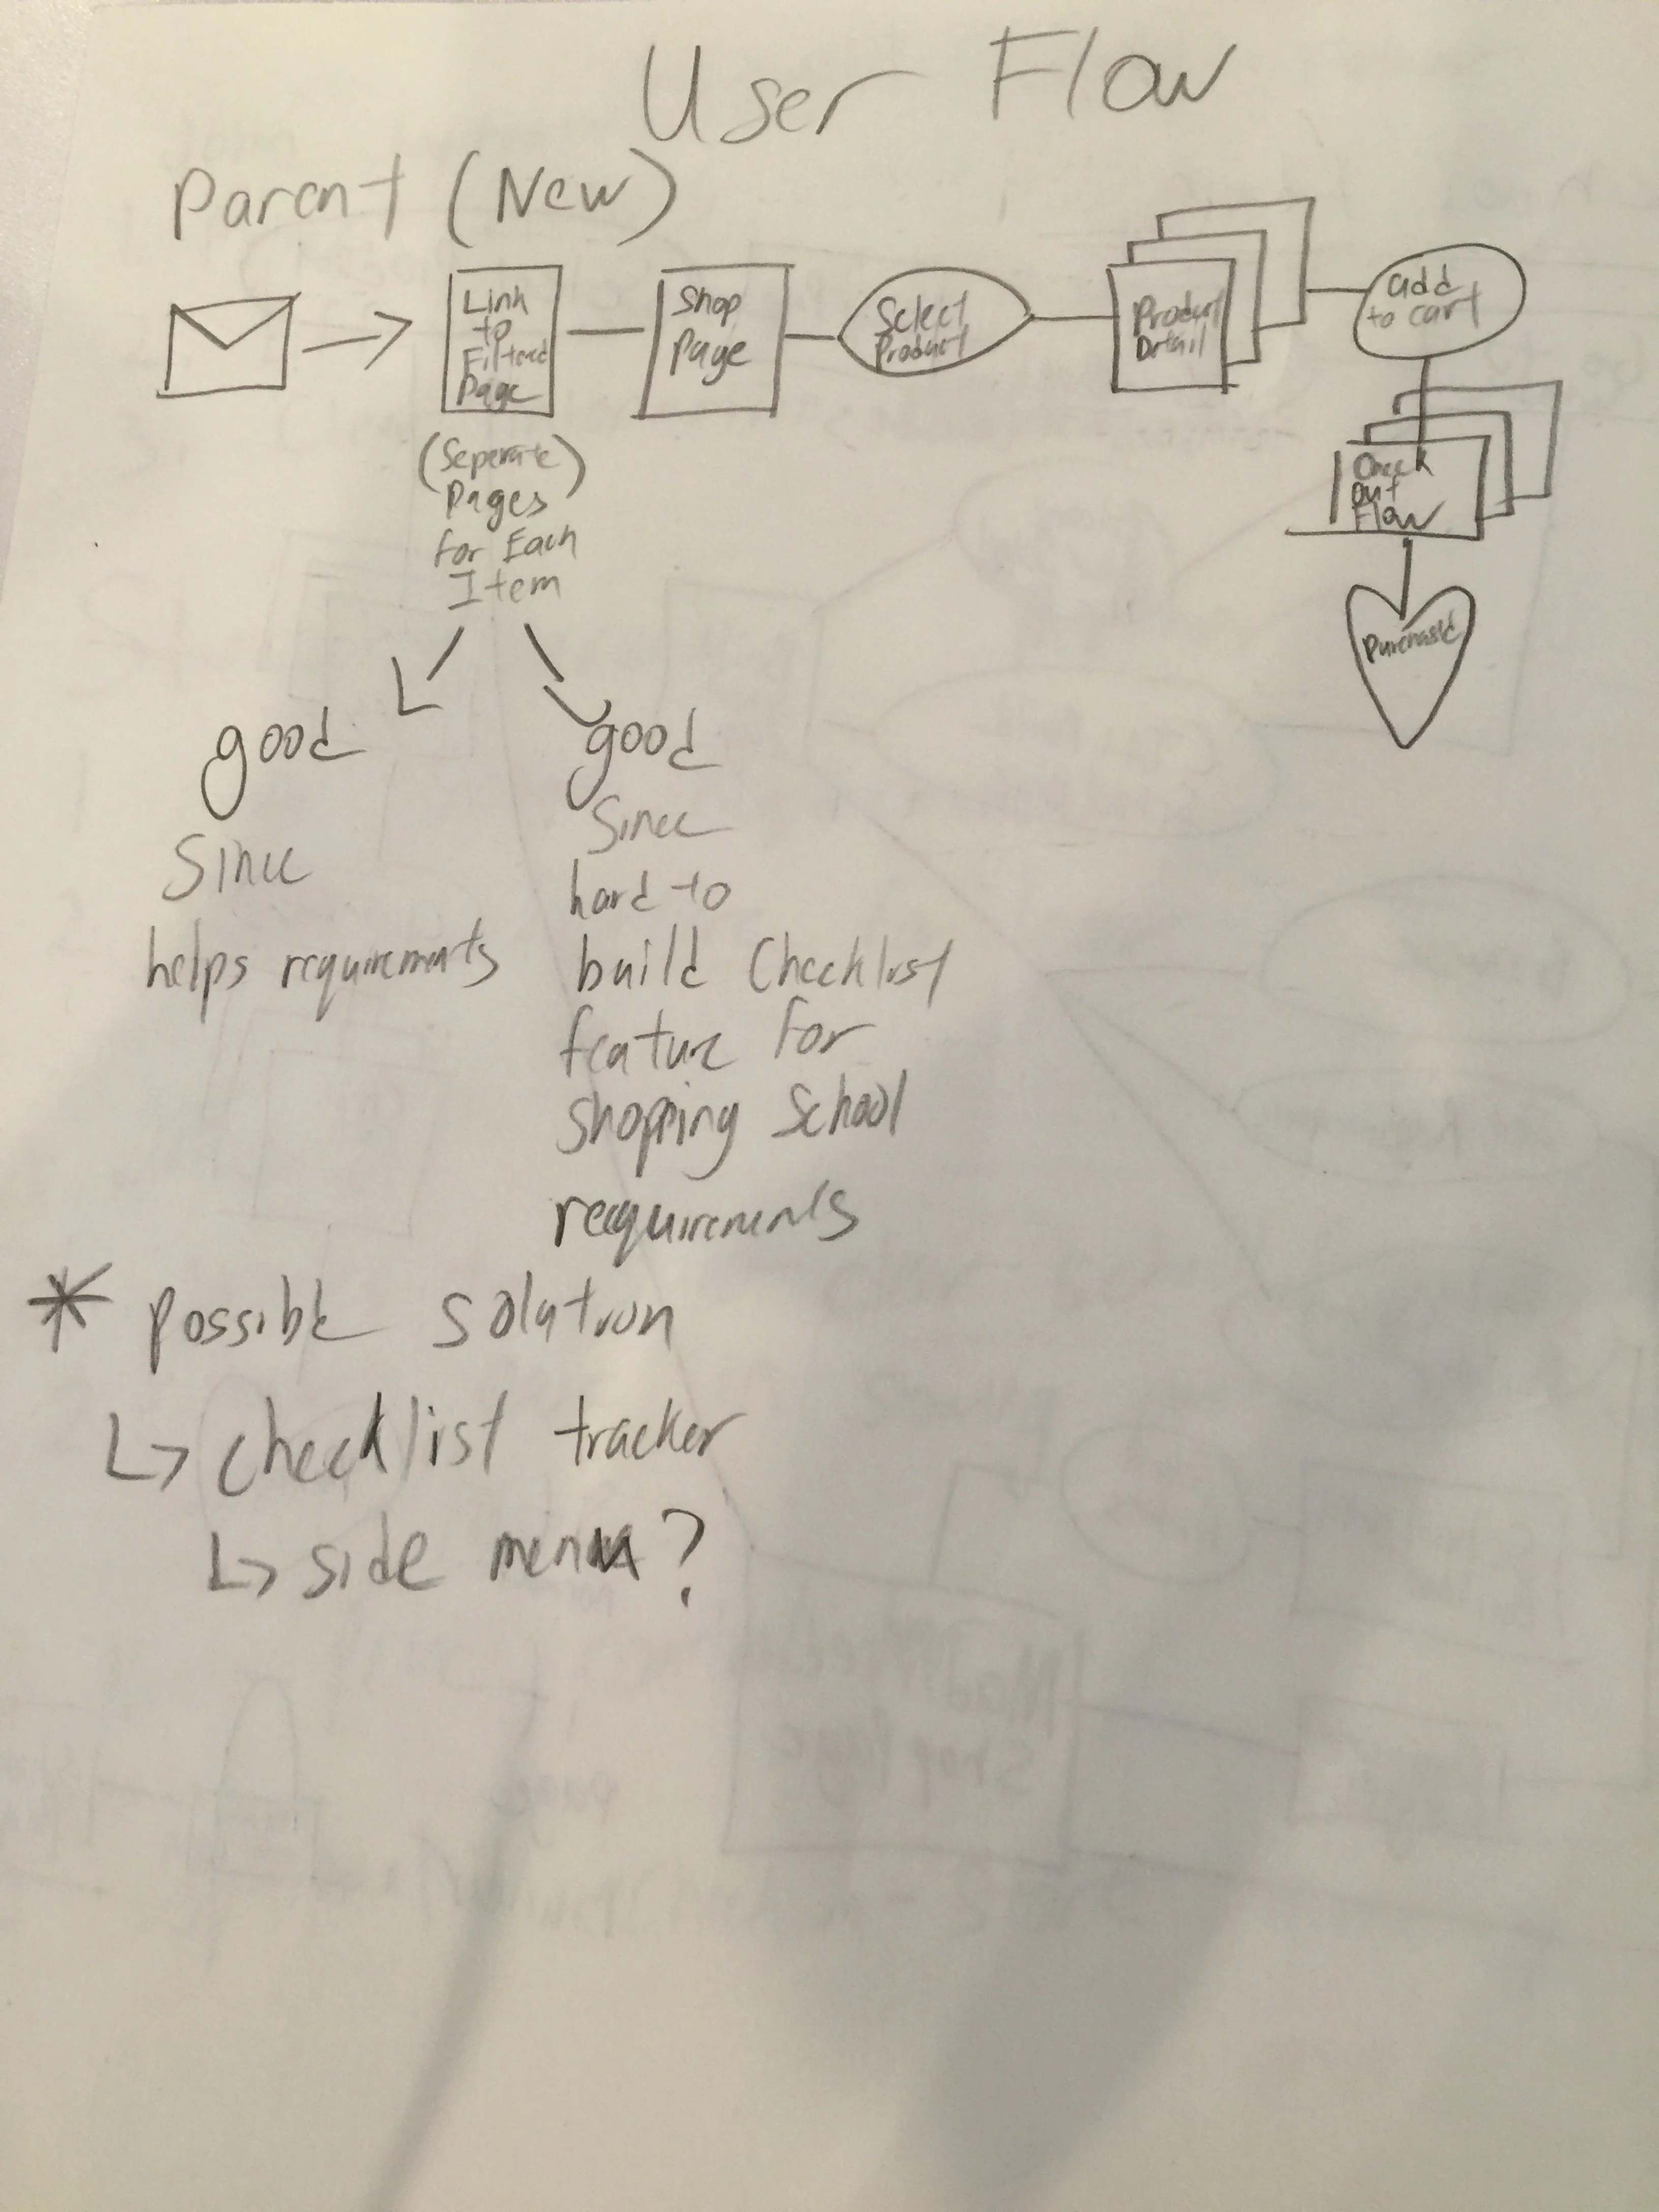 User Flow
Parent (New)
Link
to
Filtered
Page
Shop
Page
Select
Product
Product
Detail
add
to cart
Check
Out
Flow
Purchased
(Seperate)
Pages
for Each
Item
good
Since
helps requirements
good
Since
hard to
build Checklist
feature for
shopping School
requirements
* possible solution
↳ checklist tracker
↳ side menu?